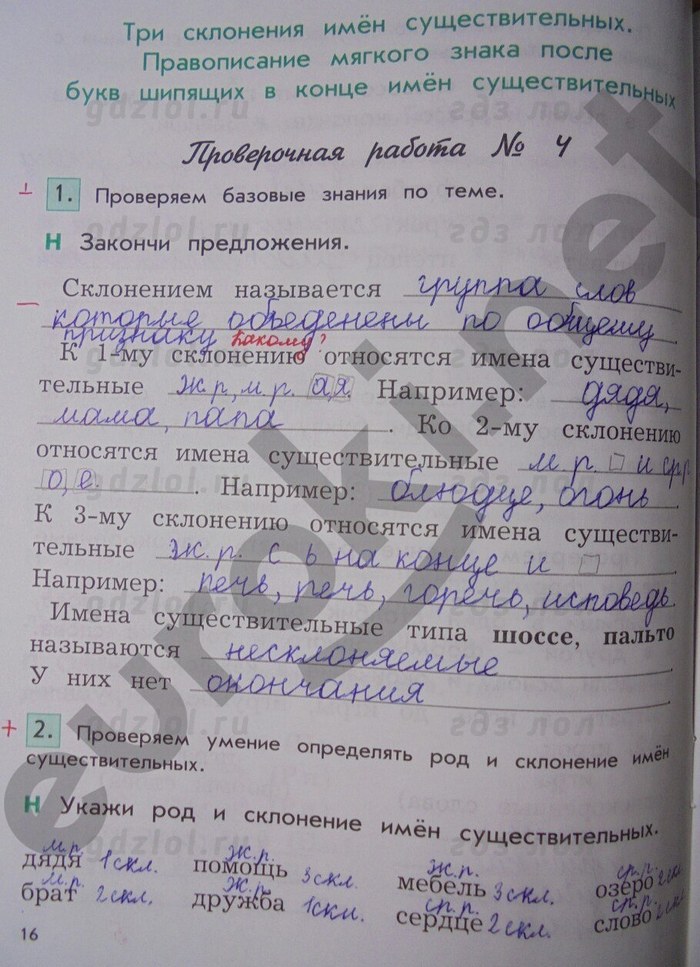 Три склонения имён существительных.
Правописание мягкого знака после
букв шипящих в конце имён существительных
Проверочная работа № 4
1. Проверяем базовые знания по теме.
Н Закончи предложения.
Склонением называется группа слов
которые объеденены по общему
признаку какому?
К 1-му склонению относятся имена существи-
тельные ж.р, м.р. а,я. Например: дядя,
мама, папа. Ко 2-му склонению
относятся имена существительные м.р. □ и ср.р
о, е. Например: блюдце, огонь.
К 3-му склонению относятся имена существи-
тельные ж.р. с ь на конце и □.
Например: печь, речь, горечь, исповедь.
Имена существительные типа шоссе, пальто
называются несклоняемые
У них нет окончания
+ 2. Проверяем умение определять род и склонение имён
существительных.
Н Укажи род и склонение имён существительных.
м.р. ж.р. ж.р. ср.р.
дядя 1 скл. помощь 3 скл. мебель 3 скл. озеро 2 скл
м.р. ж.р. ср.р. ср.р.
брат 2 скл. дружба 1 скл. сердце 2 скл. слово 2 скл
16
gdzlol.ru
гдз лол
euroki.net